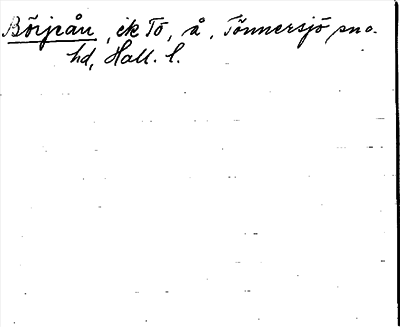 Börjeån, ek Tö, å, Tönnersjö sn o.
hd, Hall. l.